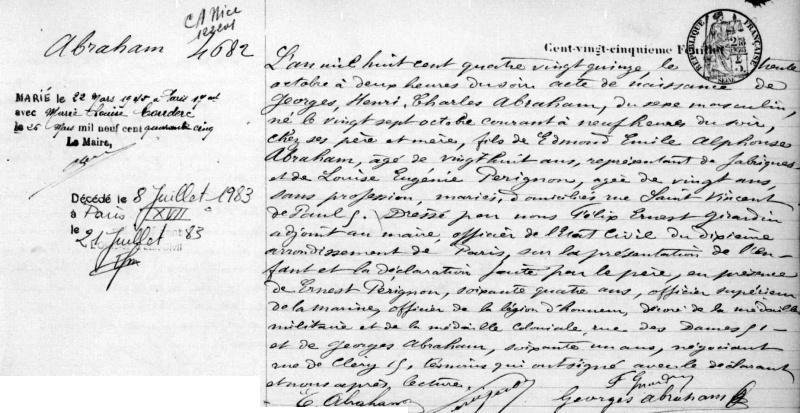 CA Nice
Abraham
4682
MARIÉ le 22 Mars 1945 à Paris 17e
avec Marie Louise
le 26 Mars mil neuf cent quarante cinq
Le Maire,
Décédé le 8 Juillet 1983
à Paris XVII
le 21 Juillet 83
Cent-vingt-cinquième Feuillet
RÉPUBLIQUE FRANÇAISE
L'an mil huit cent quatre vingt quinze, le trente
octobre à deux heures du soir acte de naissance de
Georges, Henri, Charles Abraham, du sexe masculin,
né le vingt sept octobre courant à neuf heures du soir,
chez ses père et mère, fils de Edmond Emile Alphonse
Abraham, âgé de vingt huit ans, représentant de fabriques
et de Louise Eugénie Perignon, agée de vingt ans,
sans profession, mariés, domiciliés rue Saint Vincent
de Paul 5. Dressé par nous Félix Ernest Girardin
adjoint au maire, officier de l'Etat Civil du dixième
arrondissement de Paris, sur la présentation de l'en-
fant et la déclaration faite par le père, en présence
de Ernest Perignon, soixante quatre ans, officier supérieur
de la marine, officier de la légion d'honneur, décoré de la médaille
militaire et de la médaille coloniale, rue des Dames 51
et de Georges Abraham, soixante un ans, négociant
rue de Clery 15, témoins qui ont signé avec le déclarant
et nous après lecture.
E. Abraham
F. Girardin
Georges Abraham